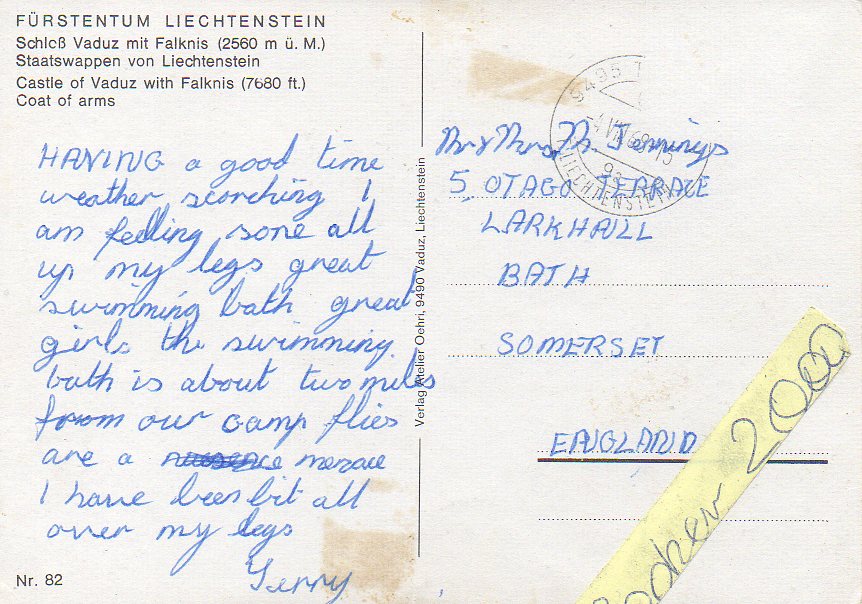 FÜRSTENTUM LIECHTENSTEIN
Schloß Vaduz mit Falknis (2560 m ü. M.)
Staatswappen von Liechtenstein
Castle of Vaduz with Falknis (7680 ft.)
Coat of arms
HAVING a good time
weather scorching I
am feeling sore all
up my legs great
swimming bath great
girls the swimming
bath is about two miles
from our camp flies
are a menace
I have been bit all
over my legs
Gerry
Nr. 82
Verlag Atelier Oehri, 9490 Vaduz, Liechtenstein
9495
LIECHTENSTEIN
Mr & Mrs M Jennings
5, OTAGO TERRACE
LARKHALL
BATH
SOMERSET
ENGLAND
2000